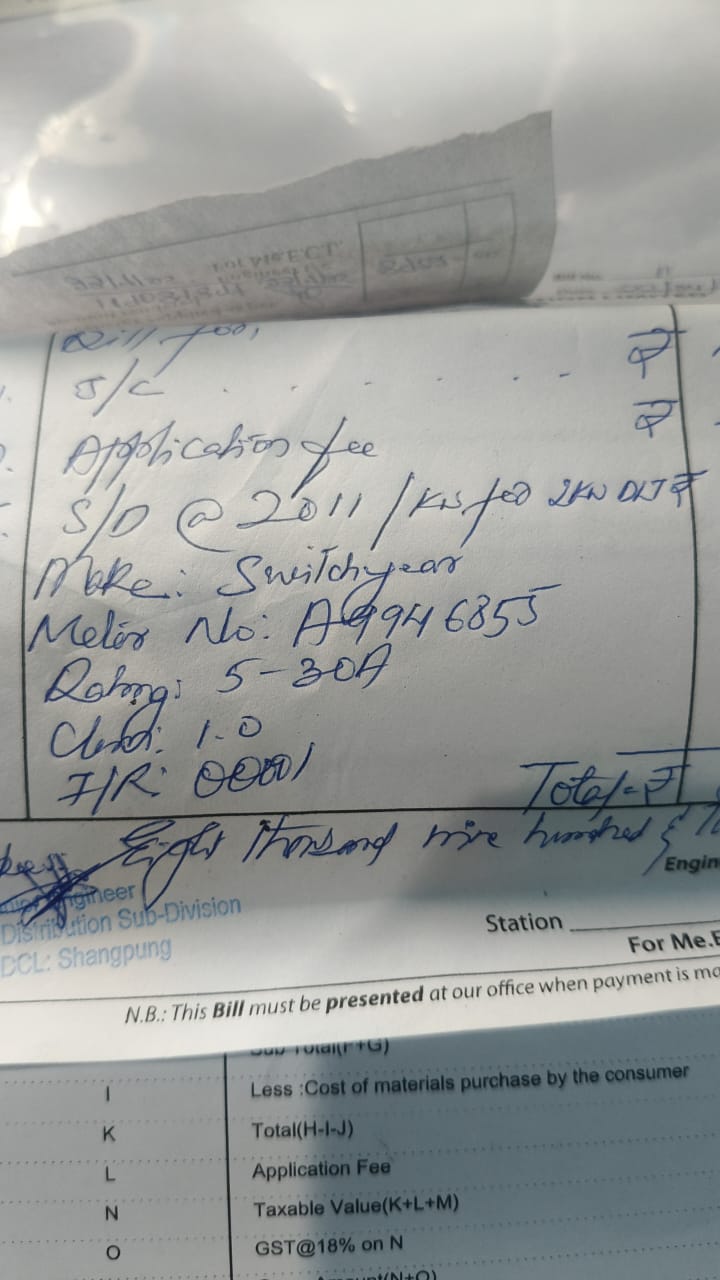 Bill for,
S/C . . . . . - ₹
Application fee ₹
S/D @ 2011/KW for 2KW DLT ₹
Make: Switchgear
Meter No: A9946855
Rating: 5-30A
Class: 1.0
I/R: 00001
Total = ₹
Eight thousand nine hundred &
Engin
Engineer
Distribution Sub-Division
DCL: Shangpung
Station
For Me.E
N.B.: This Bill must be presented at our office when payment is ma
Sub Total(F+G)
I Less :Cost of materials purchase by the consumer
K Total(H-I-J)
L Application Fee
N Taxable Value(K+L+M)
O GST@18% on N
(N+O)